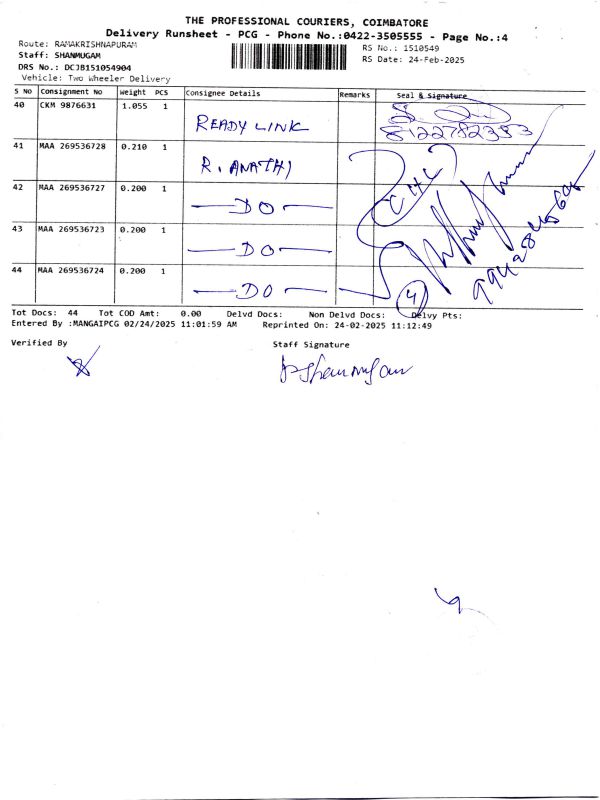 THE PROFESSIONAL COURIERS, COIMBATORE
Delivery Runsheet - PCG - Phone No.:0422-3505555 - Page No.:4
Route: RAMAKRISHNAPURAM
Staff: SHANMUGAM
DRS No.: DCJB151054904
Vehicle: Two Wheeler Delivery
RS No.: 1510549
RS Date: 24-Feb-2025
S NO Consignment No Weight PCS Consignee Details Remarks Seal & Signature
40 CKM 9876631 1.055 1 READY LINK 8122782383
41 MAA 269536728 0.210 1 R. ANATHI
42 MAA 269536727 0.200 1 —DO—
43 MAA 269536723 0.200 1 —DO—
44 MAA 269536724 0.200 1 —DO— 4
Tot Docs: 44 Tot COD Amt: 0.00 Delvd Docs: Non Delvd Docs: Delvy Pts:
Entered By :MANGAIPCG 02/24/2025 11:01:59 AM Reprinted On: 24-02-2025 11:12:49
Verified By Staff Signature